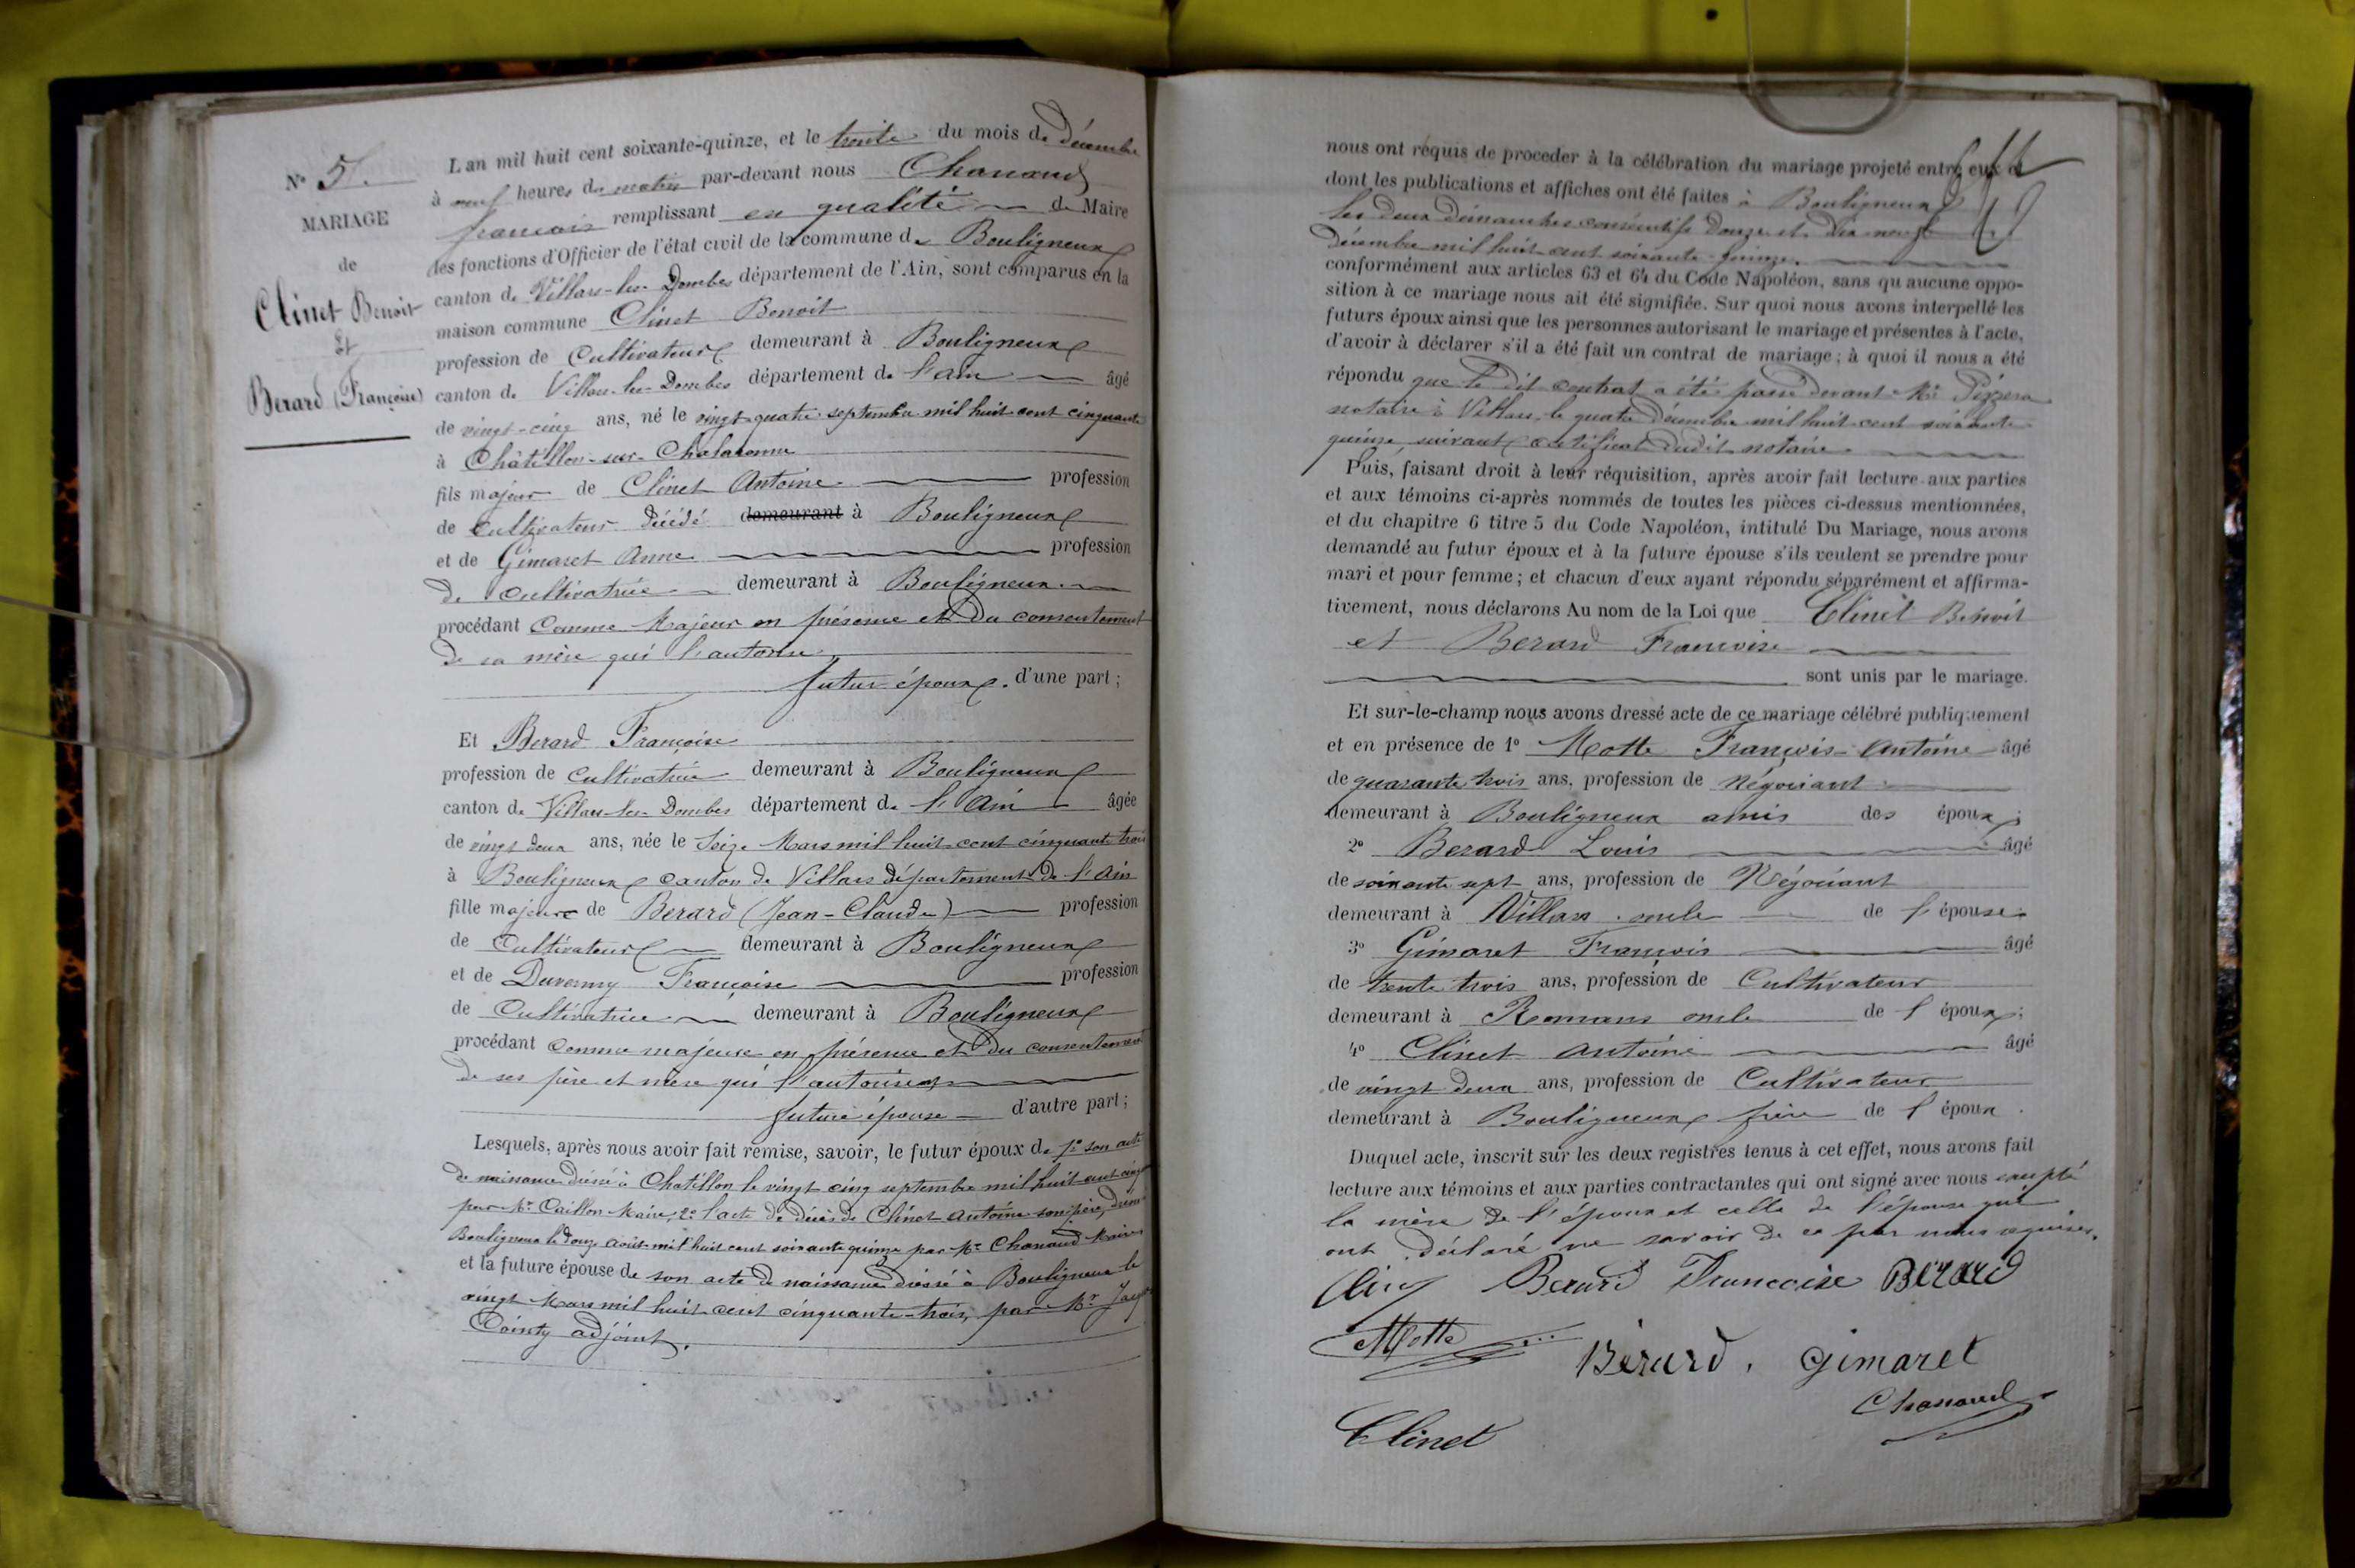 N° 5.
MARIAGE
de
Clinet Benoit
Et
Berard (Françoise)
L'an mil huit cent soixante-quinze, et le trente du mois de décembre
à neuf heures du matin par-devant nous Chanaud
françois remplissant en qualité de Maire
les fonctions d'Officier de l'état civil de la commune de Bouligneux
canton de Villars-les-Dombes département de l'Ain, sont comparus en la
maison commune Clinet Benoit
profession de Cultivateur demeurant à Bouligneux
canton de Villars-les-Dombes département de l'ain âgé
de vingt-cinq ans, né le vingt quatre septembre mil huit cent cinquante
à Châtillon-sur-Chalaronne
fils majeur de Clinet Antoine profession
de Cultivateur décédé demeurant à Bouligneux
et de Gimaret Anne profession
de cultivatrice demeurant à Bouligneux
procédant comme Majeur en présence et du consentement
de sa mère qui l'autorise
futur époux. d'une part;
Et Berard Françoise
profession de Cultivatrice demeurant à Bouligneux
canton de Villars-les-Dombes département de l'Ain âgée
de vingt deux ans, née le Seize Mars mil huit cent cinquante trois
à Bouligneux canton de Villars département de l'Ain
fille majeure de Berard (Jean-Claude) profession
de Cultivateur demeurant à Bouligneux
et de Duvernay Françoise profession
de Cultivatrice demeurant à Bouligneux
procédant comme majeure en présence et du consentement
de ses père et mère qui l'autorisent
future épouse d'autre part;
Lesquels, après nous avoir fait remise, savoir, le futur époux de 1° son acte
de naissance dressé à Chatillon le vingt cinq septembre mil huit cent cinq
par Mr Caillon Maire, 2° l'acte de décès de Clinet Antoine son père,
Bouligneux le douze août mil huit cent soixante quinze par Mr Chanaud Maire
et la future épouse de son acte de naissance dressé à Bouligneux le
vingt Mars mil huit cent cinquante-trois, par Mr
Cointy adjoint.
nous ont requis de proceder à la célébration du mariage projeté entre eux et
dont les publications et affiches ont été faites à Bouligneux
les deux dimanches consécutifs douze et dix-neuf
décembre mil huit cent soixante-quinze.
conformément aux articles 63 et 64 du Code Napoléon, sans qu'aucune oppo-
sition à ce mariage nous ait été signifiée. Sur quoi nous avons interpellé les
futurs époux ainsi que les personnes autorisant le mariage et présentes à l'acte,
d'avoir à déclarer s'il a été fait un contrat de mariage; à quoi il nous a été
répondu que le dit contrat a été passé devant Me
notaire à Villars le quatre décembre mil huit cent soixante
quinze suivant certificat dudit notaire
Puis, faisant droit à leur réquisition, après avoir fait lecture aux parties
et aux témoins ci-après nommés de toutes les pièces ci-dessus mentionnées,
et du chapitre 6 titre 5 du Code Napoléon, intitulé Du Mariage, nous avons
demandé au futur époux et à la future épouse s'ils veulent se prendre pour
mari et pour femme; et chacun d'eux ayant répondu séparément et affirma-
tivement, nous déclarons Au nom de la Loi que Clinet Benoit
et Berard Francoise
sont unis par le mariage.
Et sur-le-champ nous avons dressé acte de ce mariage célébré publiquement
et en présence de 1° Motte François-Antoine âgé
de quarante trois ans, profession de Négociant
demeurant à Bouligneux amis des époux;
2° Berard Louis âgé
de soixante sept ans, profession de Négociant
demeurant à Villars oncle de l'épouse
3° Gimaret François âgé
de trente trois ans, profession de Cultivateur
demeurant à Romans oncle de l'époux;
4° Clinet Antoine âgé
de vingt deux ans, profession de Cultivateur
demeurant à Bouligneux frère de l'époux.
Duquel acte, inscrit sur les deux registres tenus à cet effet, nous avons fait
lecture aux témoins et aux parties contractantes qui ont signé avec nous excepté
la mère de l'époux et celle de l'épouse qui
ont déclaré ne savoir de ce par nous requises.
Berard Francoise Berard
Motte
Berard. Gimaret
Chanaud
Clinet